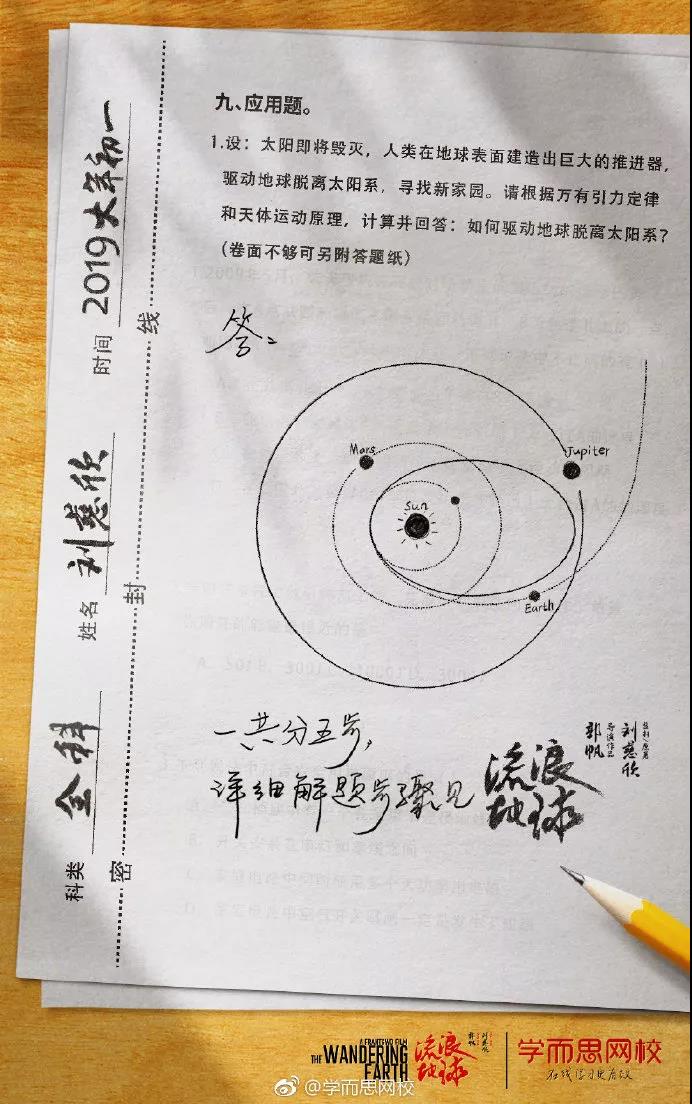 九、应用题。
1.设：太阳即将毁灭，人类在地球表面建造出巨大的推进器，
驱动地球脱离太阳系，寻找新家园。请根据万有引力定律
和天体运动原理，计算并回答：如何驱动地球脱离太阳系？
（卷面不够可另附答题纸）
答：
Mars
Jupiter
Sun
Earth
一共分五步，
详细解题步骤见
流浪
地球
郭帆
导演作品
刘慈欣
监制/原著
科类 全科
姓名 刘慈欣
时间 2019大年初一
密 封 线
A FRANT GWO FILM
THE WANDERING
EARTH
流浪
地球
郭帆
刘慈欣
学而思网校
在线学习更有效
@学而思网校